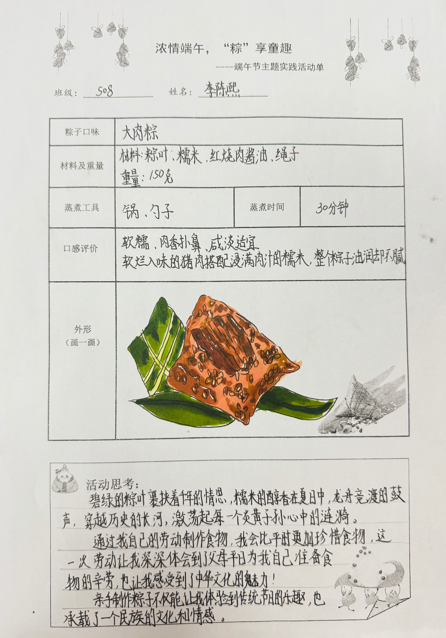 浓情端午，“粽”享童趣
----端午节主题实践活动单
班级： 508 姓名： 李陈熙
粽子口味 大肉粽
材料及重量 材料：粽叶、糯米、红烧肉酱油、绳子
重量：150克
蒸煮工具 锅、勺子 蒸煮时间 30分钟
口感评价 软糯、肉香扑鼻、咸淡适宜
软烂入味的猪肉搭配浸满肉汁的糯米，整个粽子油润却不腻
外形
（画一画）
活动思考：
碧绿的粽叶裹挟着千年的情思，糯米的醇香在夏日中，龙舟竞渡的鼓
声，穿越历史的长河，激荡起每一个炎黄子孙心中的涟漪。
通过我自己的劳动制作食物，我会比平时更加珍惜食物，这
一次劳动让我深深体会到了父母平日为我自己准备食
物的辛劳，也让我感受到了中华文化的魅力！
亲手制作粽子不仅能让我体验到传统节日的乐趣，也
承载了一个民族的文化和情感。